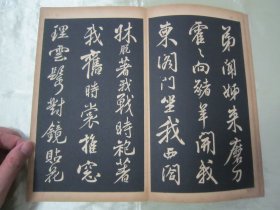 弟聞姊來磨刀
霍〻向豬羊開我
東閣門坐我西閣
牀脫著我戰時袍著
我舊時裳推窓
理雲鬢對鏡貼花